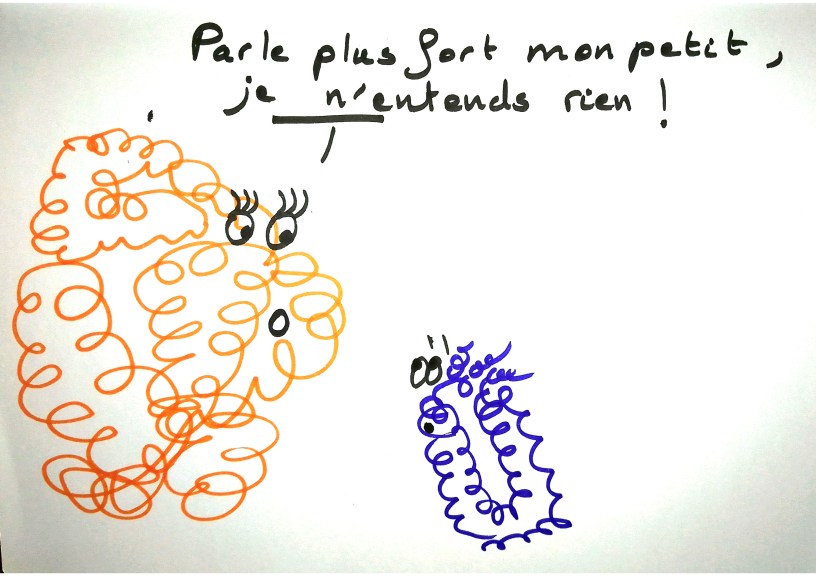 Parle plus fort mon petit,
je n'entends rien !